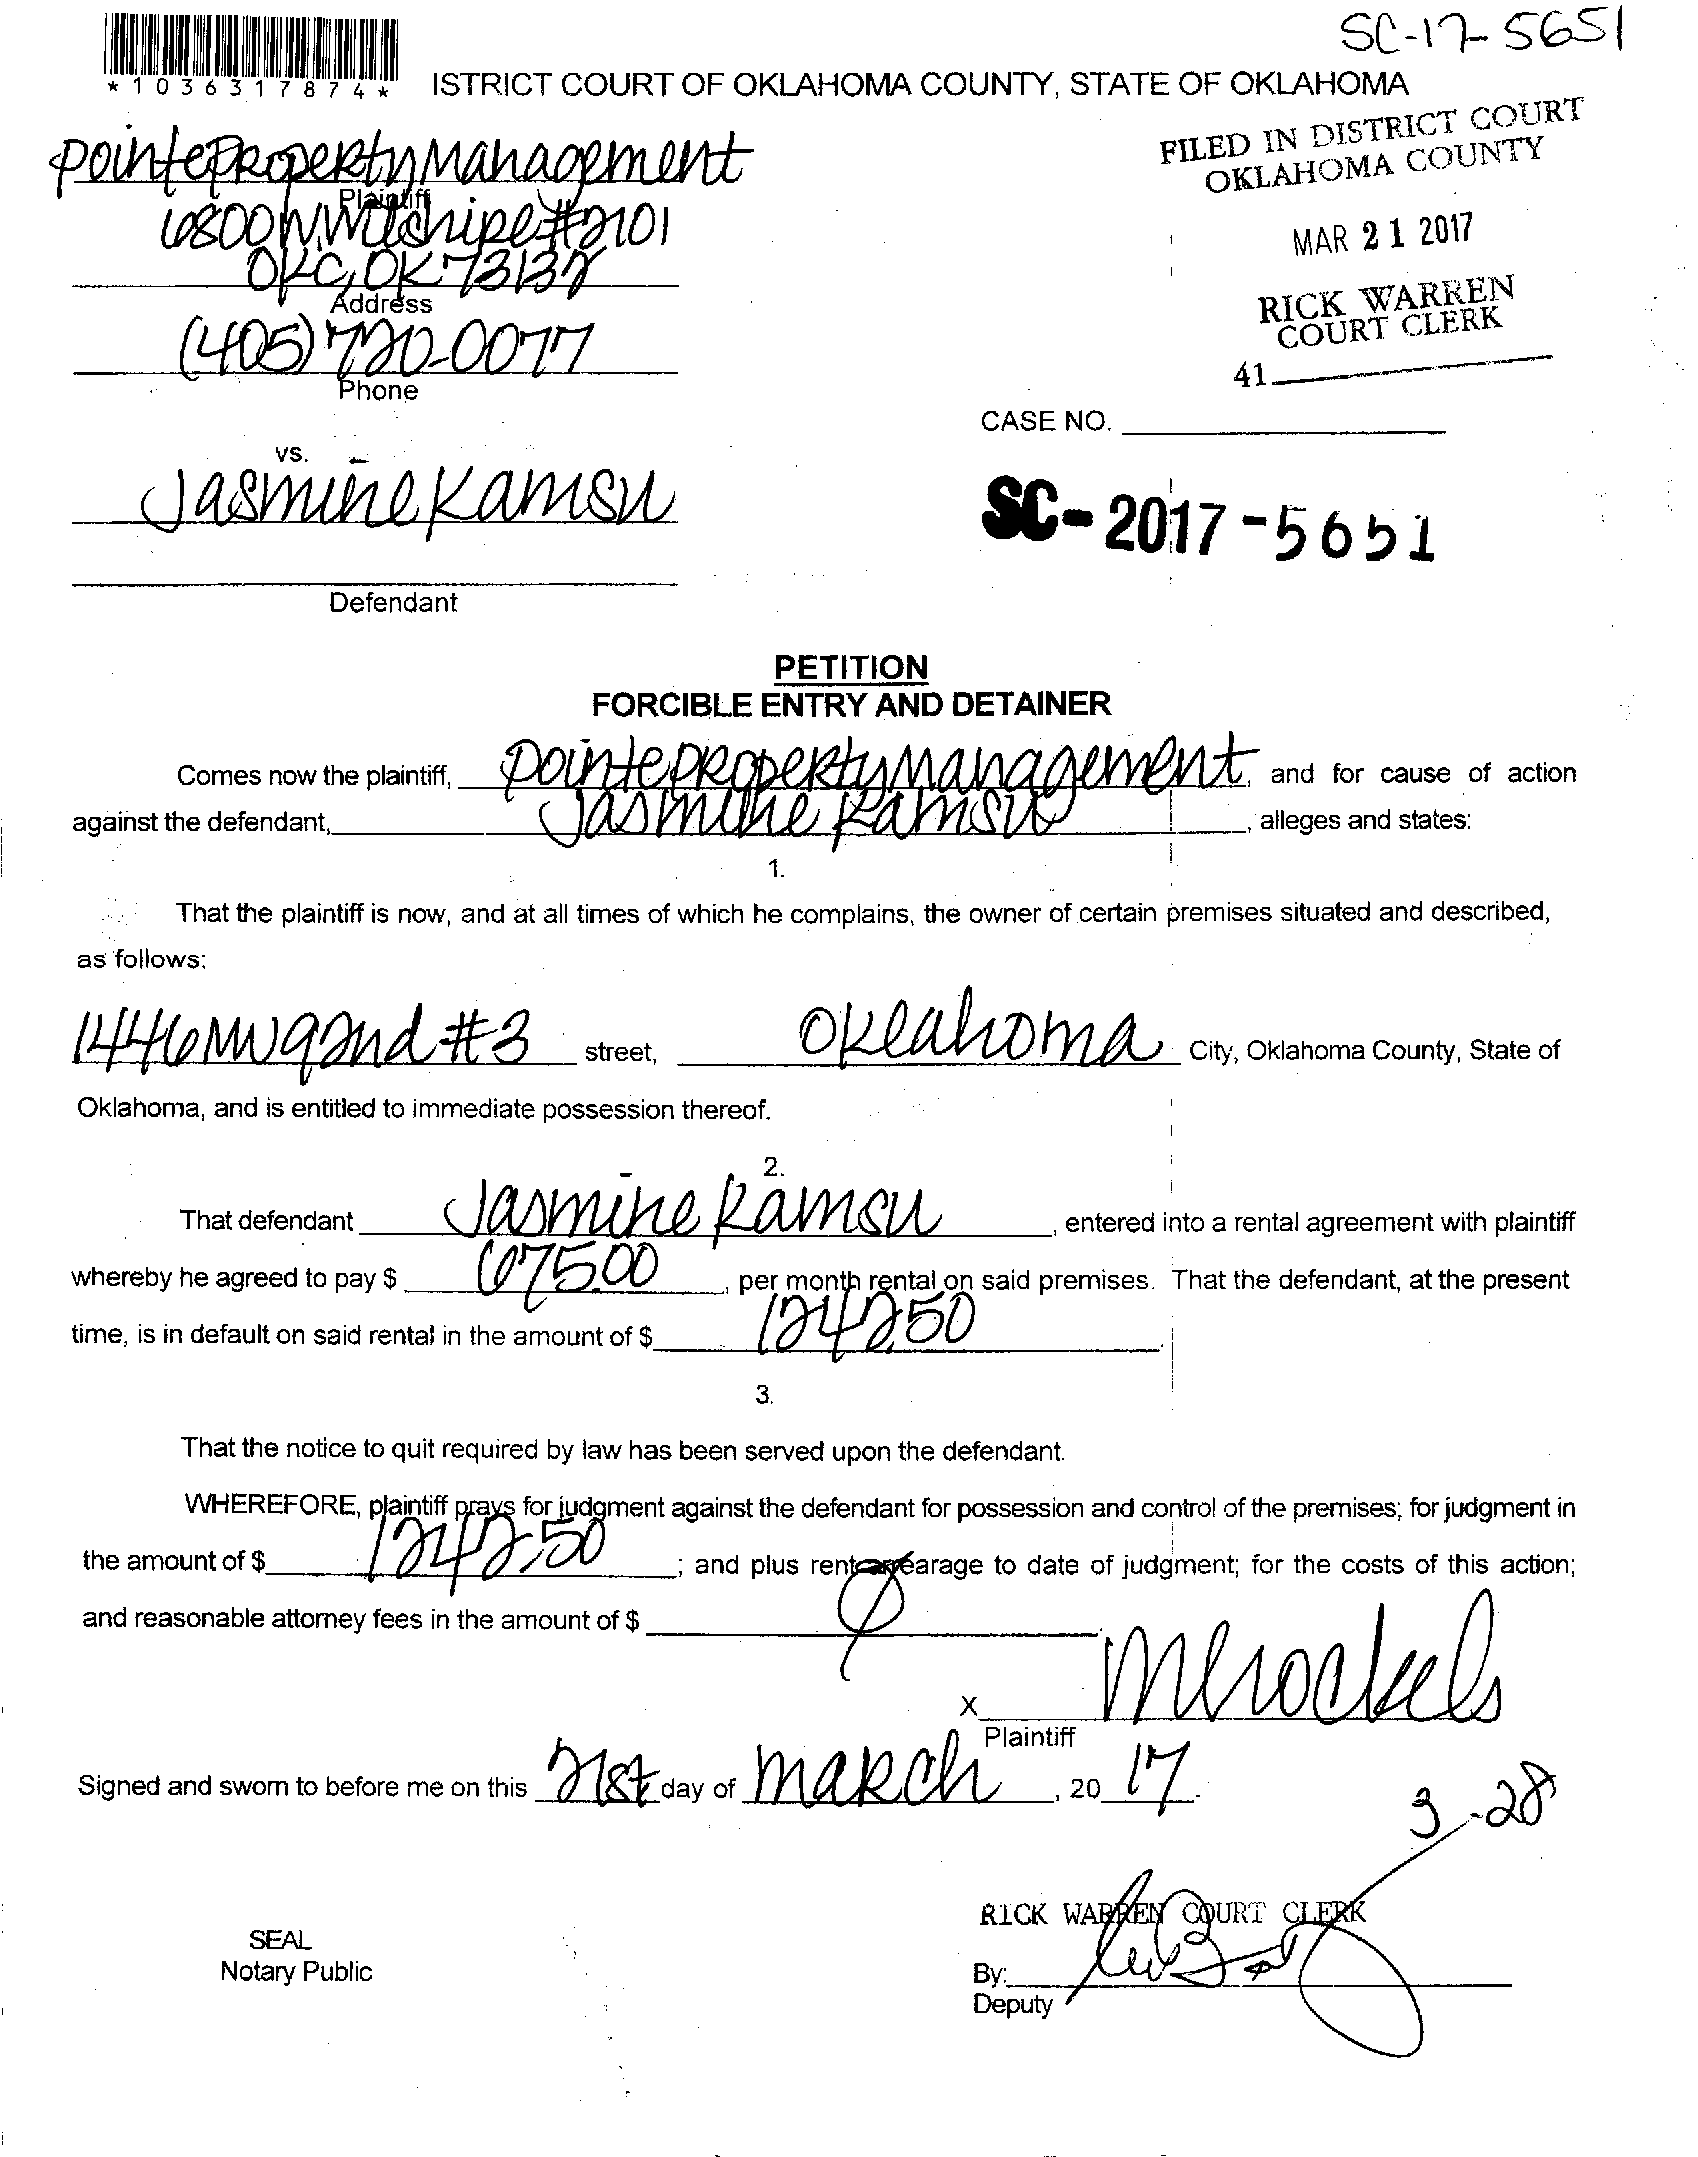 SC-17-5651
*1036317874*
ISTRICT COURT OF OKLAHOMA COUNTY, STATE OF OKLAHOMA
FILED IN DISTRICT COURT
OKLAHOMA COUNTY
MAR 21 2017
RICK WARREN
COURT CLERK
41
Pointe Property Management
Plaintiff
6800 W. Wilshire #2101
OKC, OK 73132
Address
(405) 720-0077
Phone
CASE NO.
SC-2017-5651
vs.
Jasmine Kamsu
Defendant
PETITION
FORCIBLE ENTRY AND DETAINER
Comes now the plaintiff, Pointe Property Management, and for cause of action
against the defendant, Jasmine Kamsu, alleges and states:
1.
That the plaintiff is now, and at all times of which he complains, the owner of certain premises situated and described,
as follows:
1446 NW 92nd #3 street, Oklahoma City, Oklahoma County, State of
Oklahoma, and is entitled to immediate possession thereof.
2.
That defendant Jasmine Kamsu, entered into a rental agreement with plaintiff
whereby he agreed to pay $ 675.00, per month rental on said premises. That the defendant, at the present
time, is in default on said rental in the amount of $ 1242.50.
3.
That the notice to quit required by law has been served upon the defendant.
WHEREFORE, plaintiff prays for judgment against the defendant for possession and control of the premises; for judgment in
the amount of $ 1242.50; and plus rent arrearage to date of judgment; for the costs of this action;
and reasonable attorney fees in the amount of $
X
Plaintiff
Signed and sworn to before me on this 21st day of March, 20 17.
3-28
RICK WARREN COURT CLERK
SEAL
Notary Public
By:
Deputy